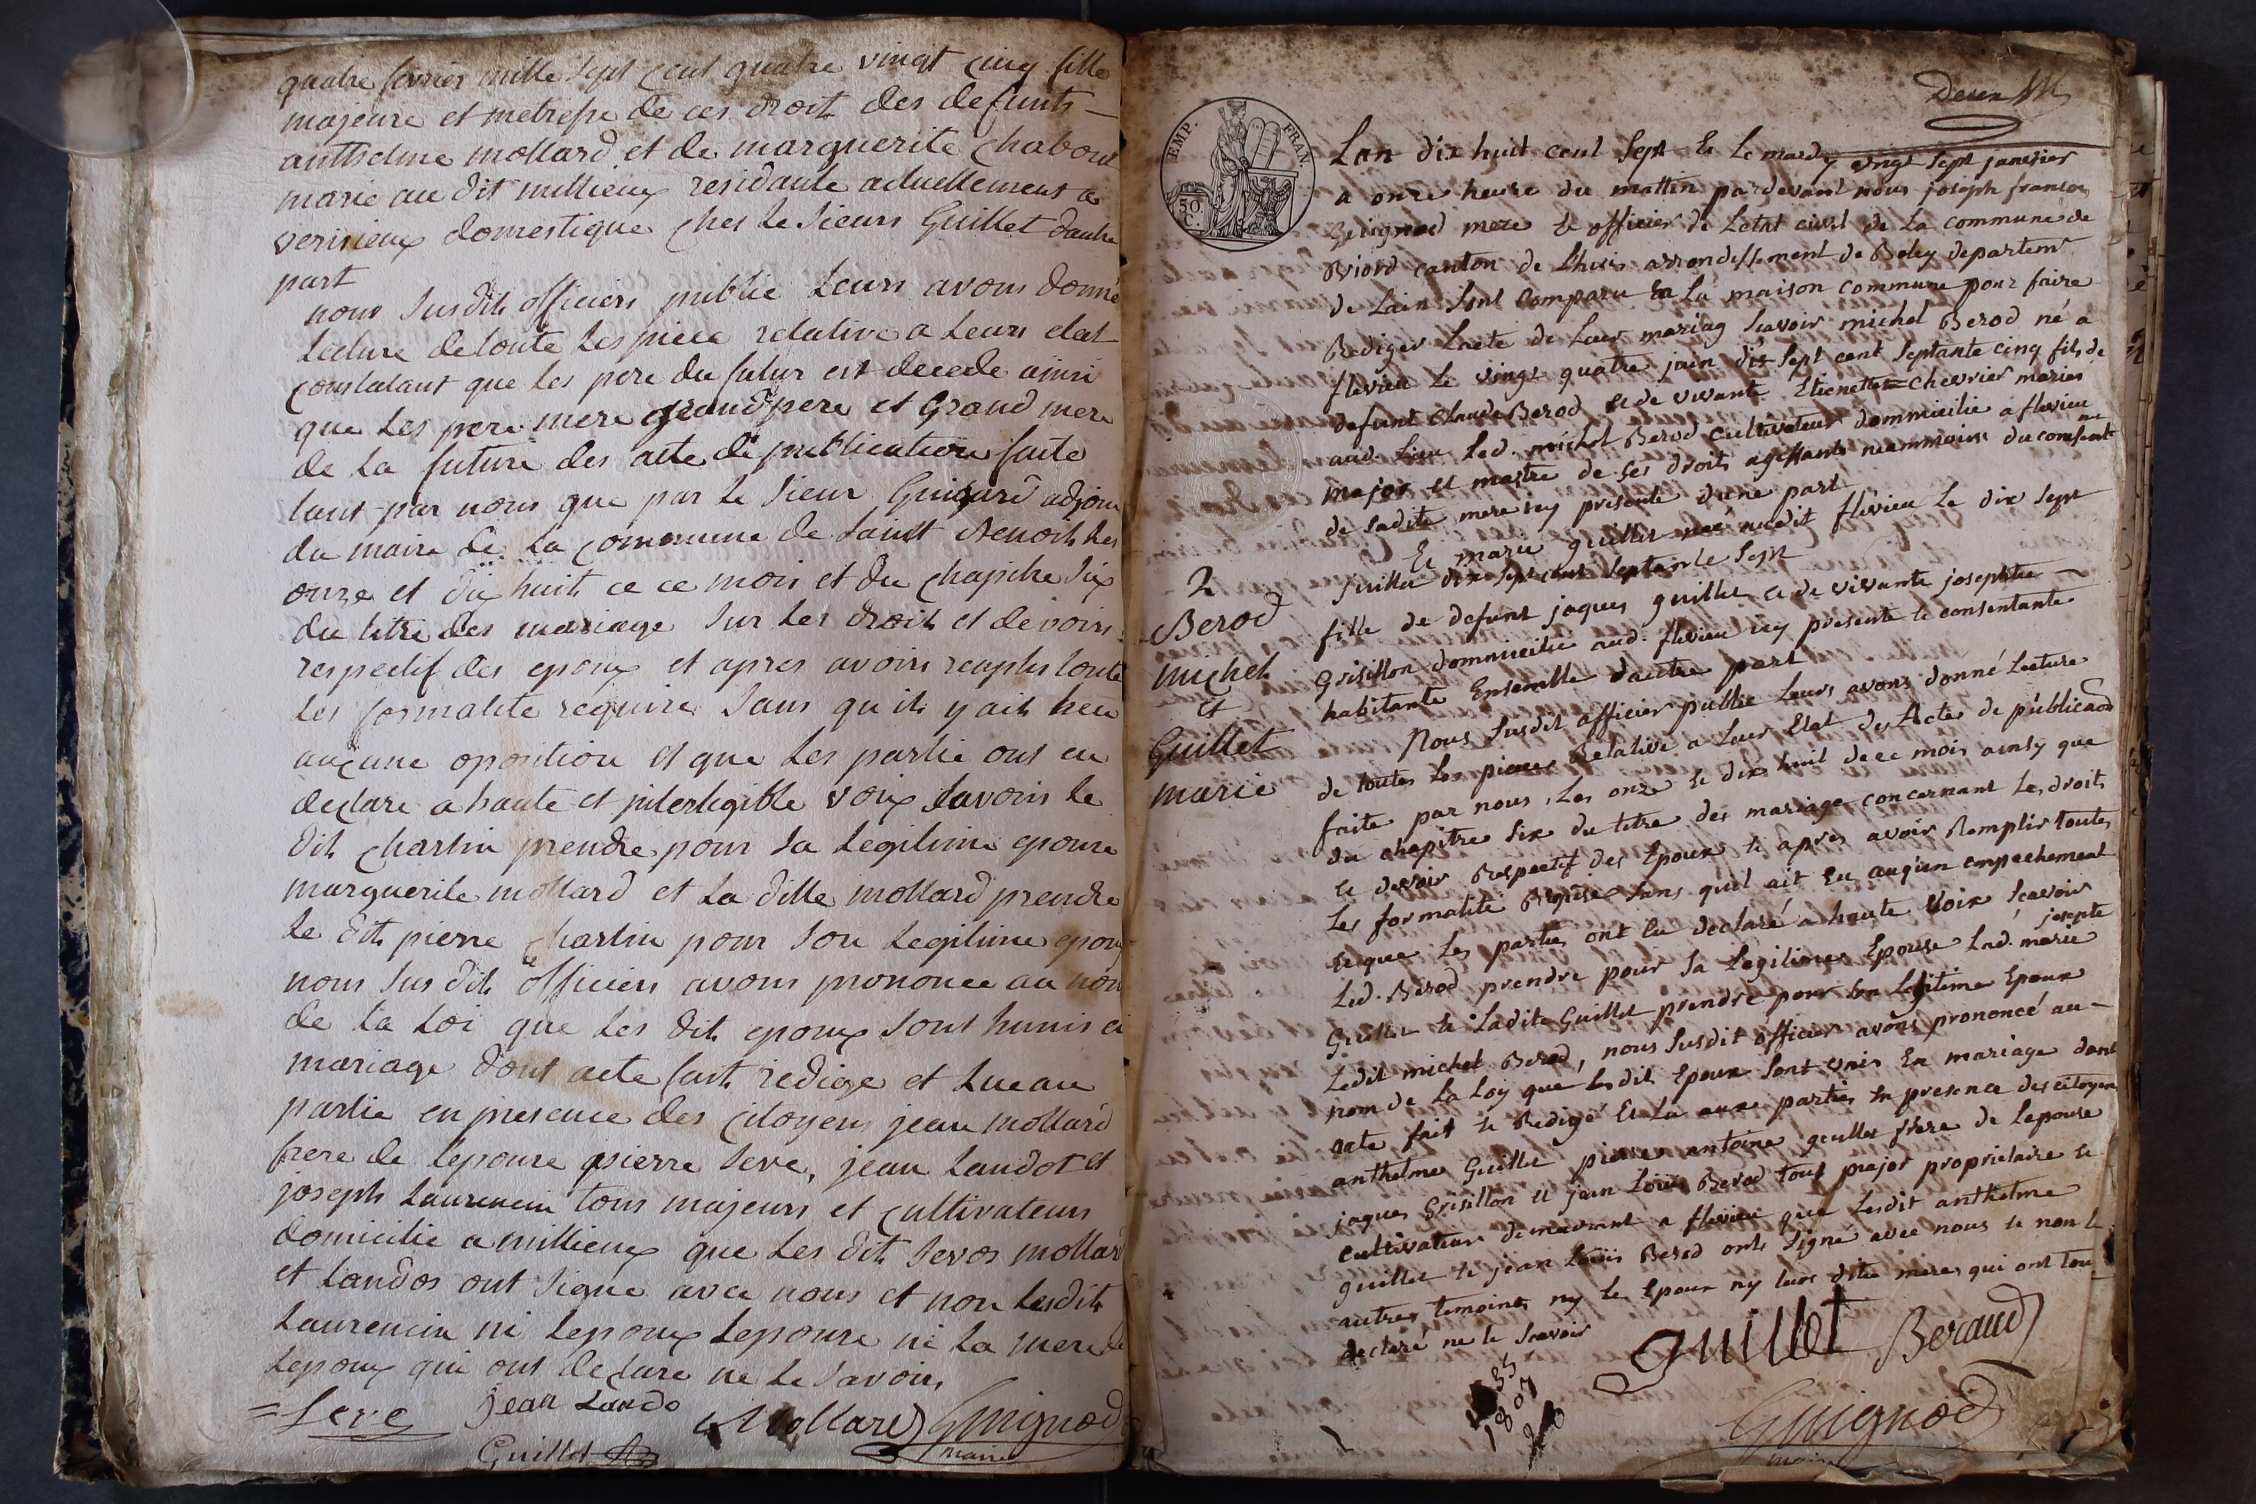 quatre fevrier mille sept cent quatre vingt cinq fille
majeure et metresse de ces droit des defunts
anthelme mollard et de marguerite Chaboud
marié au dit millieux residante actuellement a
verisieux domestique ches le sieurs Guillet d'autre
part
nous susdits officiers public leurs avons donné
lecture de toute les piece relative a leurs etat
constatant que les pere du futur est decede ainsi
que les pere mere grand pere et Grand mere
de la future des acte de publication faite
tant par nous que par le sieur Guigard adjoin
du maire de la commune de saint Benoit les
onze et dix huit ce ce mois et du chapitre six
du titre des mariage sur les droits et devoirs
respectif des epoux et apres avoir remplis toute
les formalité require sans qu'ils y ait heu
aucune oposition et que les partie ont eu
declare a haute et inteligible voix savoirs le
dit charlin prendre pour sa legitime epouse
marguerite mollard et la ditte mollard prendre
le dit pierre charlin pour son legitime epoux
nous sus dits officiers avons prononcé au nom
de la loi que les dits epoux sont hunis en
mariage dont acte fait redige et lu au
partie en presence des citoyens jean mollard
frere de lepouse pierre seve, jean Landot et
joseph Laurencin tous majeurs et cultivateurs
domicilié a millieux que les dits sevos mollard
et Landos ont signe avec nous et non lesdits
Laurencin ni lepoux lepouse ni la mere de
lepoux qui ont declare ne le savoir,
Seve jean Lando Mollard Guignod
Guillet maire
Deux
EMP. FRAN.
50 C.
Lan dix huit cent sept & le mardy vingt sept janvier
a onze heure du mattin par devant nous joseph francois
Guignod mere et officier de letat civil de la commune de
Briord canton de Lhuis arrondissement de Beley departemt
de Lain sont comparu en la maison commune pour faire
Rediger Lacte de leur mariag scavoir michel Berod né a
flevieu le vingt quatre juin dix sept cent septante cinq fils de
defunt claude Berod et de vivante Etienette chevrier mariés
aud. lieu led. michel Berod cultivateur dommicilié a flevieu
major et maitre de ses droits agissants neammoins du consentmt
de sadite mere icy presente d'une part
Et marie guillet née audit flevieu le dix sept
juillet dix sept cent septante sept
fille de defunt jaques guillet et de vivante josephte
Grisillon dommicilié aud. flevieu icy presente et consentante
habitante Ensemble dautre part
2
Berod
michel
et
Guillet
marie
Nous susdit officier public leurs avons donné Lecture
de toutes les pieces Relative a leur Etat des Actes de publicaon
faite par nous les onze et dix huit de ce mois ainsy que
du chapitre six du titre des mariage concernant les droits
et devoir Respectif des Epoux et apres avoir Remplir toutes
les formalité Requise sans quil ait eu auqun empechement
et que les parties ont eu declaré a haute voix scavoir
josepte
Led. Berod prendre pour sa legitimes Epouse Lad. marie
Guillet et Ladite Guillet prendre pour son Legitime Epoux
Ledit michel Berod, nous susdit officier avons prononcé au
nom de la Loy que lesdit Epoux sont unis en mariage dont
acte fait et Redigé Et Lu aux parties en presence des citoyen
anthelme Guillet pierre antoine guillet frere de Lepouse
jaques Grisillon et jean Louis Berod tous major proprietaire et
cultivateur demeurant a flevieu que lesdit anthelme
guillet et jean Louis Berod onts signé avec nous et non le
autres temoins ny les Epoux ny leurs dite meres qui ont tou
declaré ne le scavoir
Guillet Beraud
1807
Guignod
maire